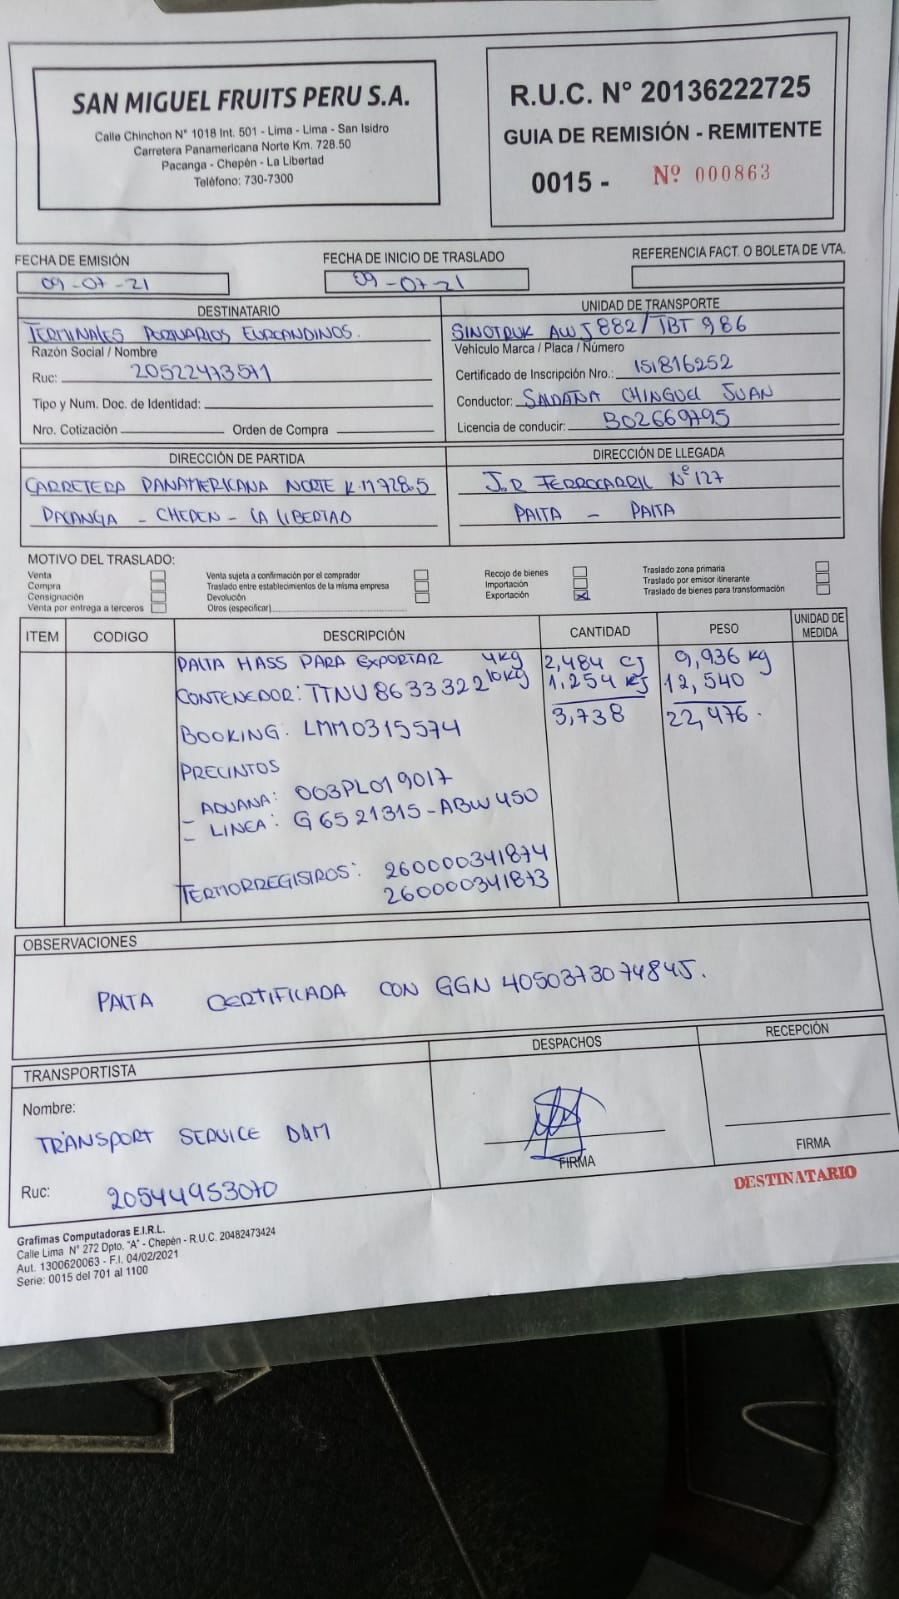 SAN MIGUEL FRUITS PERU S.A.
Calle Chinchon N° 1018 Int. 501 - Lima - Lima - San Isidro
Carretera Panamericana Norte Km. 728.50
Pacanga - Chepèn - La Libertad
Telèfono: 730-7300
R.U.C. N° 20136222725
GUIA DE REMISIÓN - REMITENTE
0015 - Nº 000863
FECHA DE EMISIÓN
09-07-21
FECHA DE INICIO DE TRASLADO
09-07-21
REFERENCIA FACT. O BOLETA DE VTA.
DESTINATARIO
TERMINALES PORTUARIOS EUROANDINOS.
Razón Social / Nombre
Ruc: 20522473571
Tipo y Num. Doc. de Identidad:
Nro. Cotización Orden de Compra
UNIDAD DE TRANSPORTE
SINOTRUK AWJ882/TBT986
Vehiculo Marca / Placa / Número
Certificado de Inscripción Nro.: 151816252
Conductor: SALDAÑA CHINGUEL JUAN
Licencia de conducir: B02669795
DIRECCIÓN DE PARTIDA
CARRETERA PANAMERICANA NORTE K.M 728.5
PACANGA - CHEPEN - LA LIBERTAD
DIRECCIÓN DE LLEGADA
J.R FERROCARRIL N° 127
PAITA - PAITA
MOTIVO DEL TRASLADO:
Venta
Compra
Consignación
Venta por entrega a terceros
Venta sujeta a confirmación por el comprador
Traslado entre establecimientos de la misma empresa
Devolución
Otros (especificar)
Recojo de bienes
Importación
Exportación X
Traslado zona primaria
Traslado por emisor itinerante
Traslado de bienes para transformación
ITEM CODIGO DESCRIPCIÓN CANTIDAD PESO UNIDAD DE MEDIDA
PALTA HASS PARA EXPORTAR 4kg 2,484 CJ 9,936 kg
CONTENEDOR: TTNU 8633322 10kg 1,254 CJ 12,540
3,738 22,476.
BOOKING: LMM0315574
PRECINTOS
- ADUANA: 003PL019017
- LINEA: G6521315-ABW450
TERMORREGISTROS: 260000341874
260000341873
OBSERVACIONES
PALTA CERTIFICADA CON GGN 4050373074845.
TRANSPORTISTA
Nombre:
TRANSPORT SERVICE D&M
Ruc: 20544953070
DESPACHOS
FIRMA
RECEPCIÓN
FIRMA
DESTINATARIO
Grafimas Computadoras E.I.R.L.
Calle Lima N° 272 Dpto. "A" - Chepèn - R.U.C. 20482473424
Aut. 1300620063 - F.I. 04/02/2021
Serie: 0015 del 701 al 1100